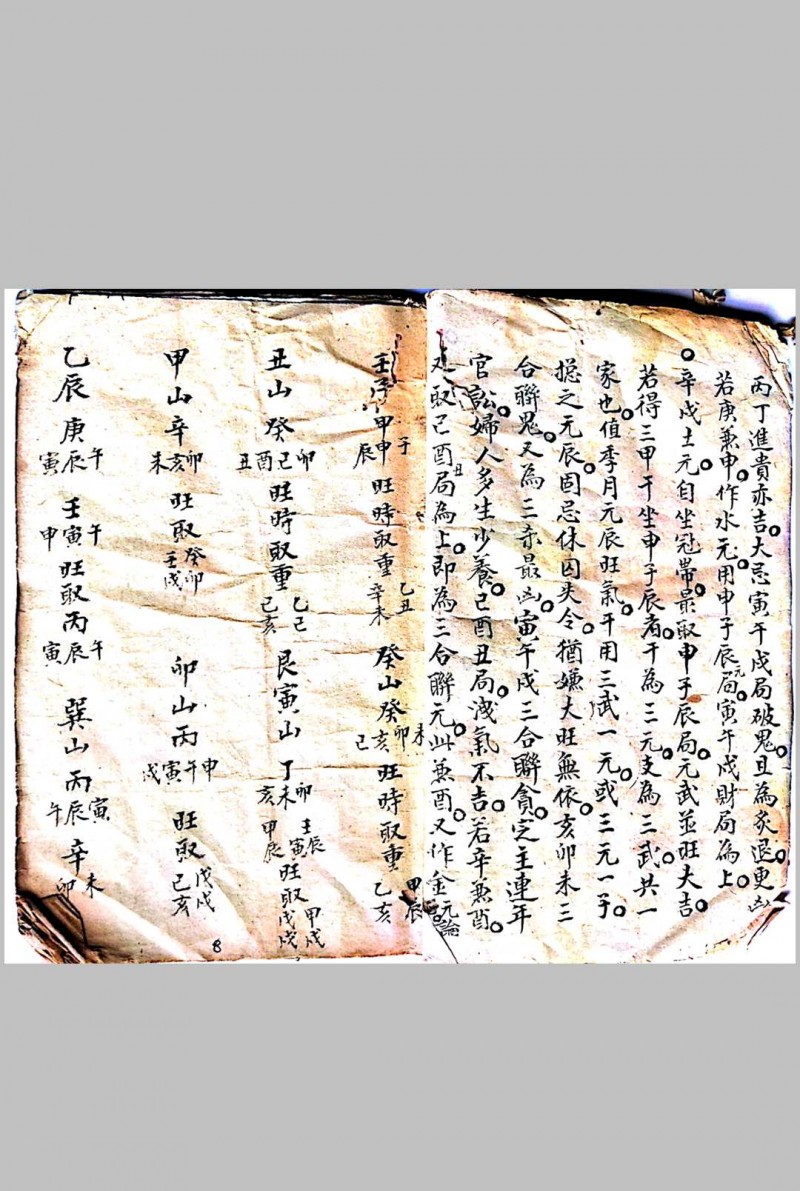 丙丁進貴亦吉。大忌寅午戌局破鬼。且為炙退更凶
若庚兼申。作水元。用申子辰局。寅午戌財局為上。
。辛戌土元。自坐冠帶。最取申子辰局。元武並旺大吉
若得三甲干坐申子辰。者干為三元。支為三武。共一
家也。值季月元辰旺氣。干用三武一元。或三元一子。
摠之元辰。固忌休囚失令。猶嫌大旺無依。亥卯未三
合聯鬼。又為三杀最凶。寅午戌三合聯貪。定主連年
官訟。婦人多生少養。己酉丑局。洩氣不吉。若辛兼酉。
又取己酉丑局為上。即為三合聯元。此兼酉。又作金元論
壬子甲申子辰旺時取重乙丑辛未 癸山癸未卯亥己旺時取重甲辰乙亥
丑山癸卯己酉丑旺時取重乙己己亥 艮寅山丁卯未亥壬辰寅甲辰旺取甲戌戊戌
甲山辛卯亥未旺取癸卯壬戌 卯山丙申午寅戌旺取戊戌己亥
乙辰庚午辰寅壬午寅申旺取丙午辰寅 巽山丙寅辰午辛未卯
8